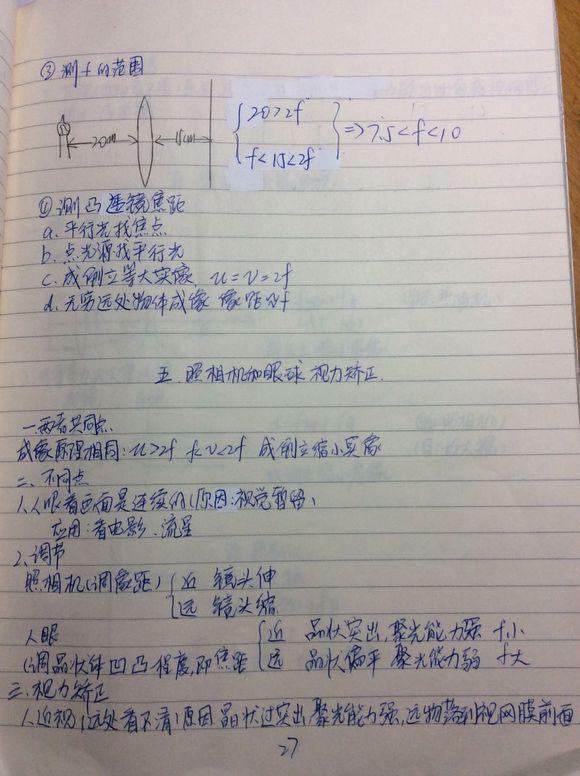 ③测f的范围
20cm 15cm
20>2f
f<15<2f
=>7.5<f<10
④测凸透镜焦距
a.平行光找焦点
b.点光源找平行光
c.成倒立等大实像 u=v=2f
d.无穷远处物体成像 像距≈f
五.照相机和眼球 视力矫正.
一.两者共同点
成像原理相同:u>2f f<v<2f 成倒立缩小实像
二.不同点
1.人眼看画面是连续的(原因:视觉暂留)
应用:看电影、流星
2.调节
照相机(调像距) 近 镜头伸
远 镜头缩
人眼 近 晶状突出,聚光能力强 f小
(调晶状体凹凸程度,即焦距 远 晶状偏平 聚光能力弱 f大
三.视力矫正
1.近视(远处看不清)原因 晶状过突出 聚光能力强,远物落到视网膜前面
27